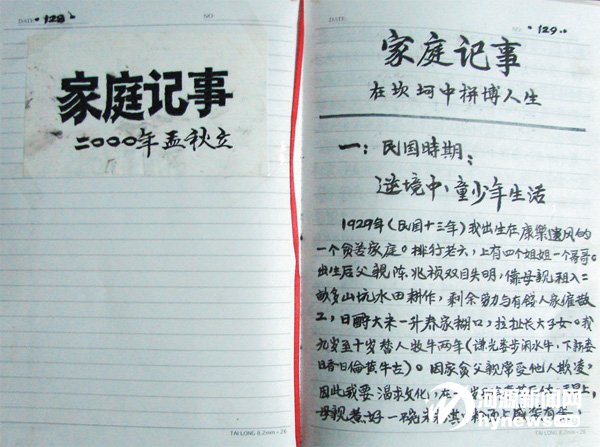 DATE: ·128·
NO:
家庭记事
二〇〇〇年孟秋立
TAI LONG 8.2mm×26
DATE:
NO: ·129·
家庭记事
在坎坷中拼博人生
一：民国時期：
逆境中童少年生活
1929年（民国十三年）我出生在康樂遗风的
一个贫苦家庭。排行老六，上有四个姐姐一个哥哥。
出生后父親陈兆祯双目失明，靠母親租入二
畝多山坑水田耕作，剩余劳力与有錢人家僱做
工，日酬大米一升养家糊口，拉扯长大子女。我
九岁至十岁替人牧牛两年（
水牛，
日香日倫黄牛古）。因家贫父親常受他人欺凌，
因此我要渴求文化，在
母親煮好一碗
TAI LONG 8.2mm×26
河源新闻网
hynews.cn